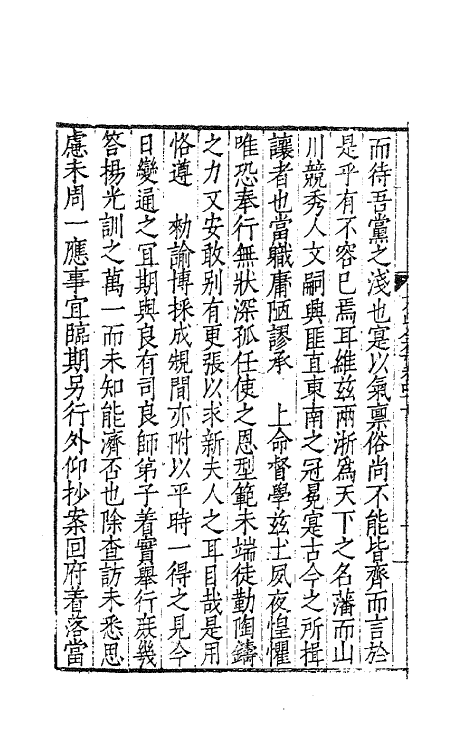 而待吾黨之淺也寔以氣禀俗尚不能皆齊而言於
是乎有不容已焉耳維兹兩浙爲天下之名藩而山
川競秀人文嗣興匪直東南之冠冕寔古今之所揖
讓者也當職庸陋謬承　上命督學兹土夙夜惶懼
唯恐奉行無狀深孤任使之恩型範未端徒勤陶鑄
之力又安敢别有更張以求新夫人之耳目哉是用
恪遵　勑諭博採成規間亦附以平時一得之見今
日變通之冝期與良有司良師弟子着實舉行庻幾
答楊光訓之萬一而未知能濟否也除查訪未悉思
慮未周一應事宜臨期另行外仰抄案回府着落當